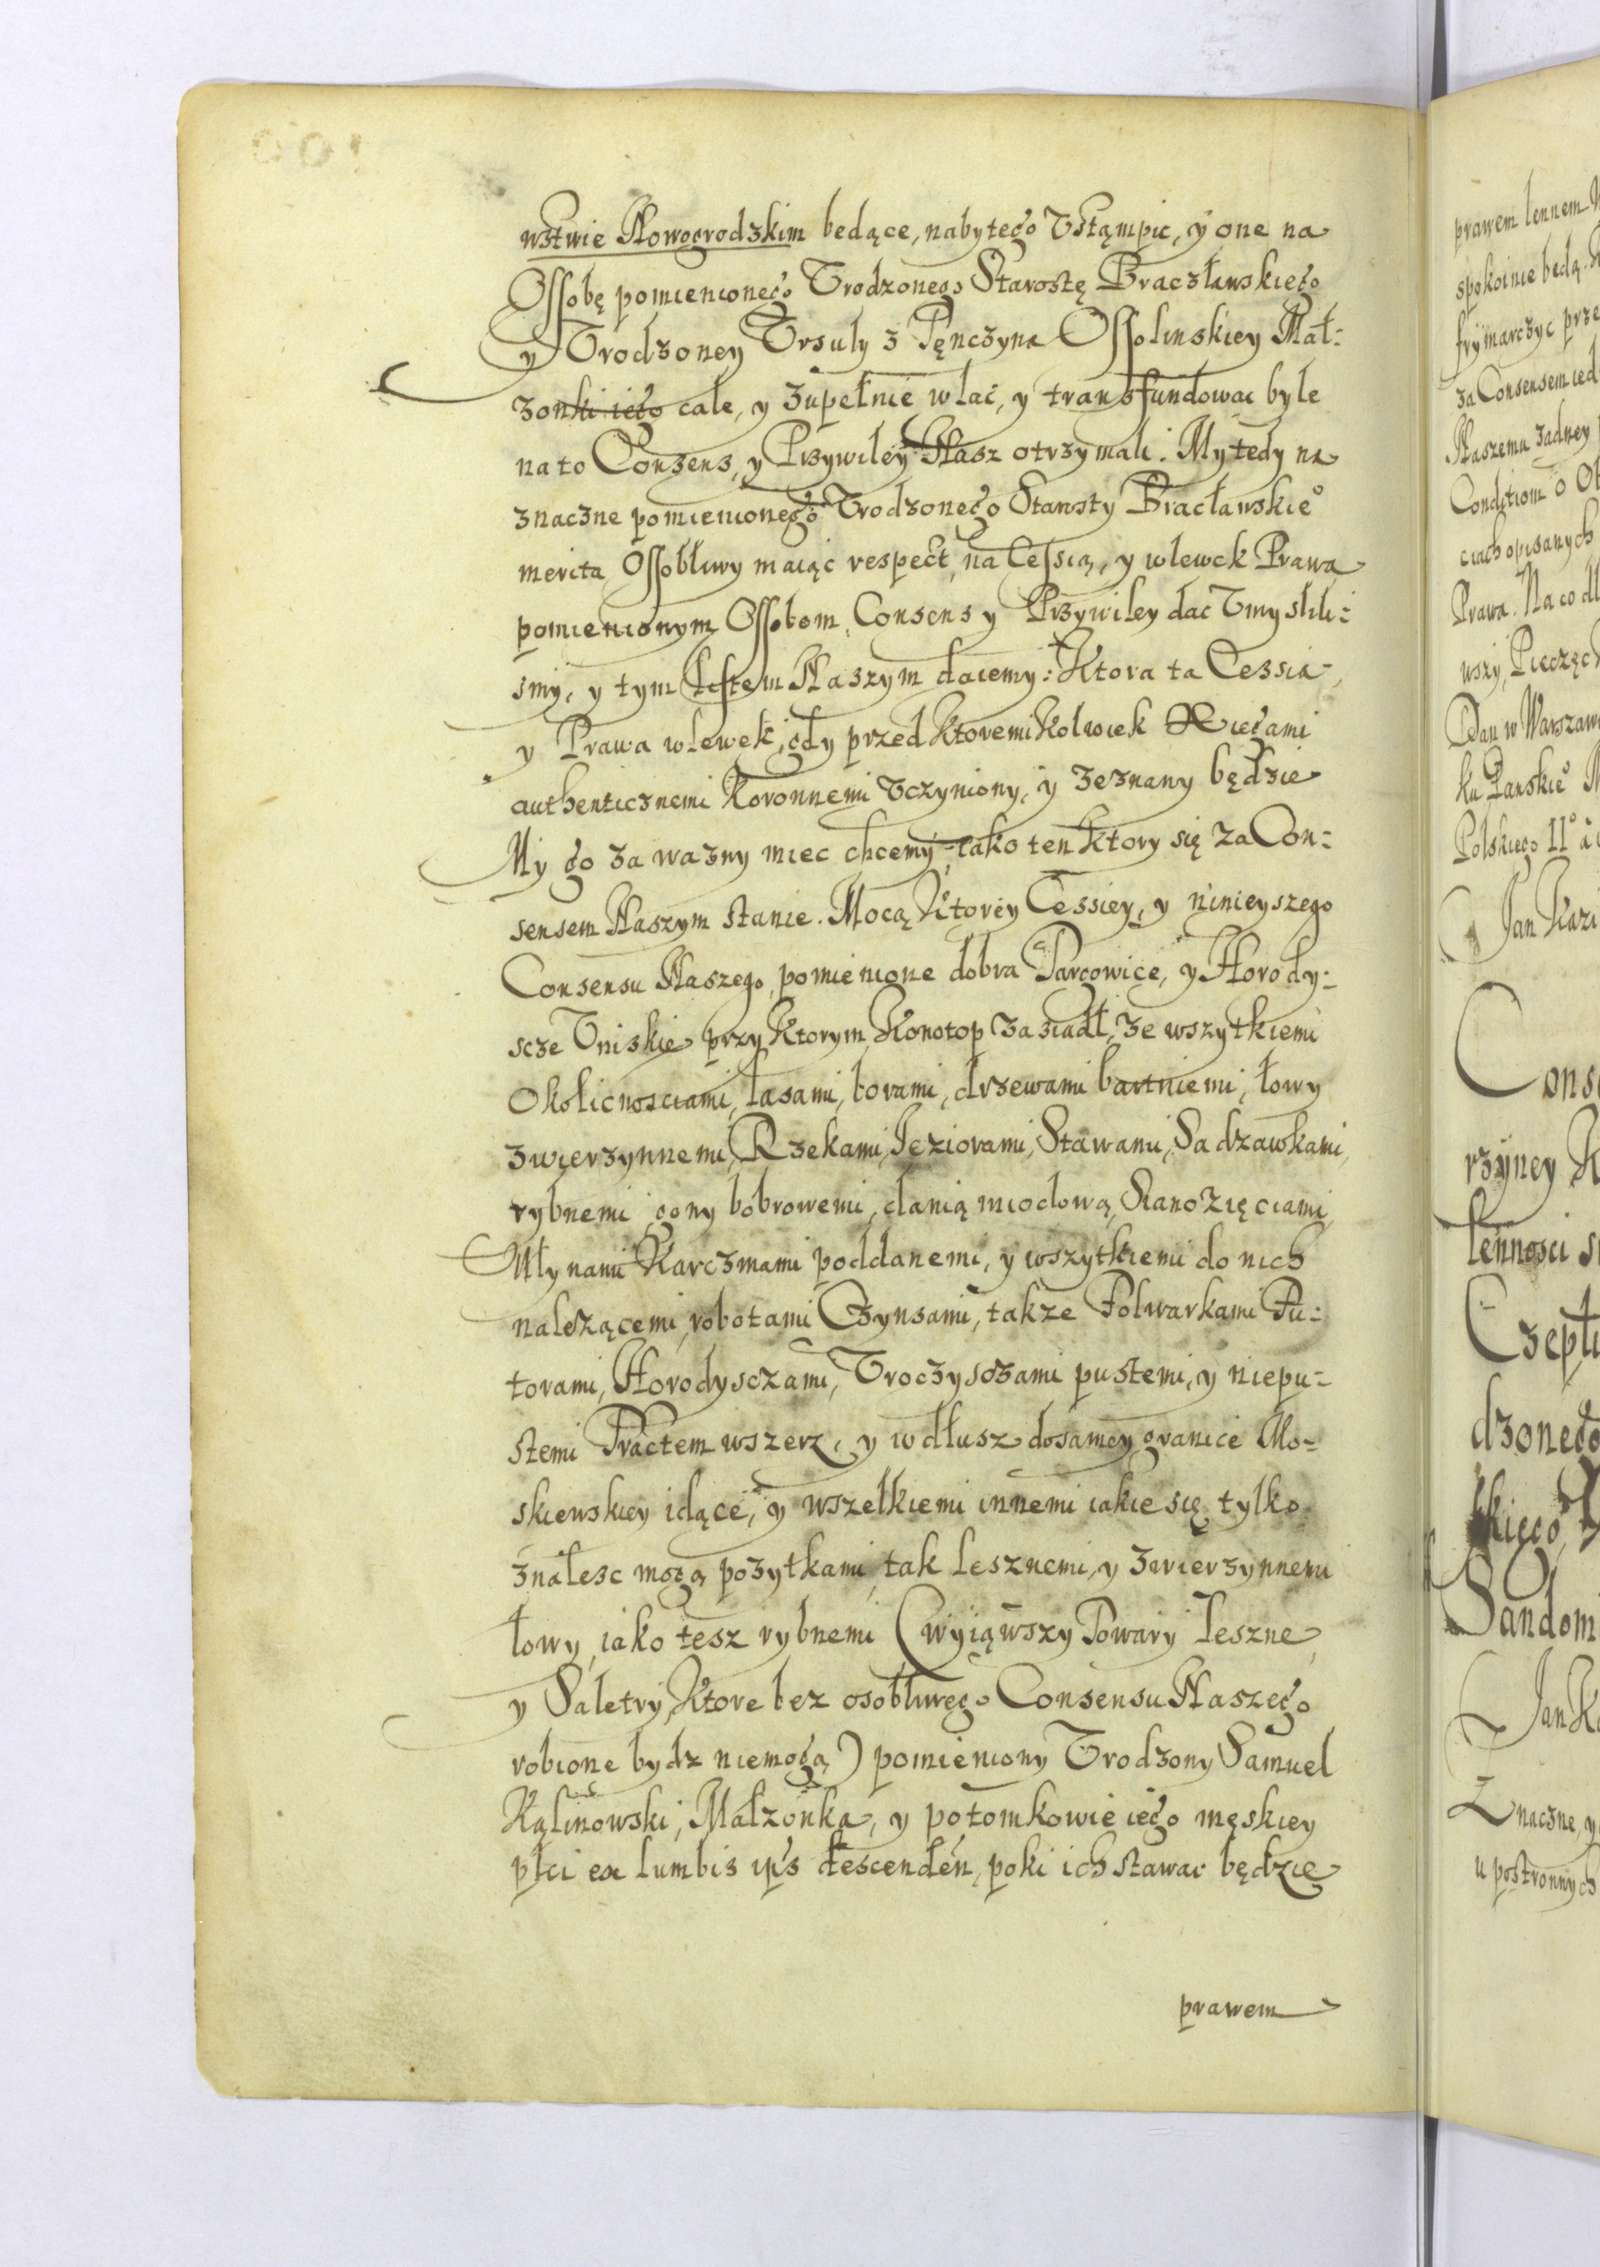 wstwie Nowogrodzkim bedące, nabytego Ustąmpic, y one na
Ossobę pomienionego Urodzonego Starostę Braczławskiego
y Urodzoney Ursuly z Tęnczyna Ossolinskiey Mał-
zonki iego cale, y zupełnie wlać, y transfundowac byle
na to Consens, y Przywiley Nasz otrzymali. My tedy na
znaczne pomienionego Urodzonego Starosty Bracławskieº
merita Ossobliwy maiąc respect, na Cessią, y wlewek Prawa
pomienionym Ossobom Consens y Przywiley dac Umyslili-
smy, y tym Listem Naszym daiemy: Ktora ta Cessia
y Prawa wlewek, gdy przed Ktoremi Kolwiek Xięgami
authenticznemi Koronnemi Uczyniony, y zeznany będzie
My go za wazny miec chcemy, iako ten Ktory się za Con-
sensem Naszym stanie. Mocą Ktorey Cessiey, y ninieyszego
Consensu Naszego, pomienione dobra Parcowice, y Horody-
scze Uniskie przy Ktorym Konotop zasiadł, ze wszytkiemi
Okolicnosciami, lasami, borami, drzewami bartniemi, łowy
zwierzynnemi, Rzekami, Jeziorami, Stawami, Sadzawkami
rybnemi, gony bobrowemi, danią miodową, Sianozięciami
Młynami Karczmami poddanemi, y wszytkiemi do nich
nalezącemi, robotami Czynsami, takze Folwarkami Fu-
torami, Horodysczami, Uroczysczami pustemi, y niepu-
stemi Tractem wszerz, y wdłusz do samey granice Mo-
skiewskiey idące, y wszelkiemi innemi iakie się tylko
znalesc mogą pozytkami, tak lesznemi, y zwierzynnemi
łowy, iako tesz rybnemi (wyiąwszy Towary Leszne
y Saletry, Ktore bez osobliwego Consensu Naszego
robione bydz niemogą) pomieniony Urodzony Samuel
Kalinowski, Małzonka, y potomkowie iego męskiey
płci ex lumbis ips descenden, poki ich stawac będzie
prawem
prawem lennem
spokoinie bedą.
frymarczyc prze
za Consensem ied
Naszemu zadney
Condition o
ciach opisanych
Prawa. Na co dl
wszy, Pieczęc
Dan w Warszaw
ku Panskieº
Polskiego IIº
Jan Kazi
Cons
rzyney K
lennosci
Czepli
dzonego
skiego
Sandom
Jan K
Znaczne, y
u postronnych